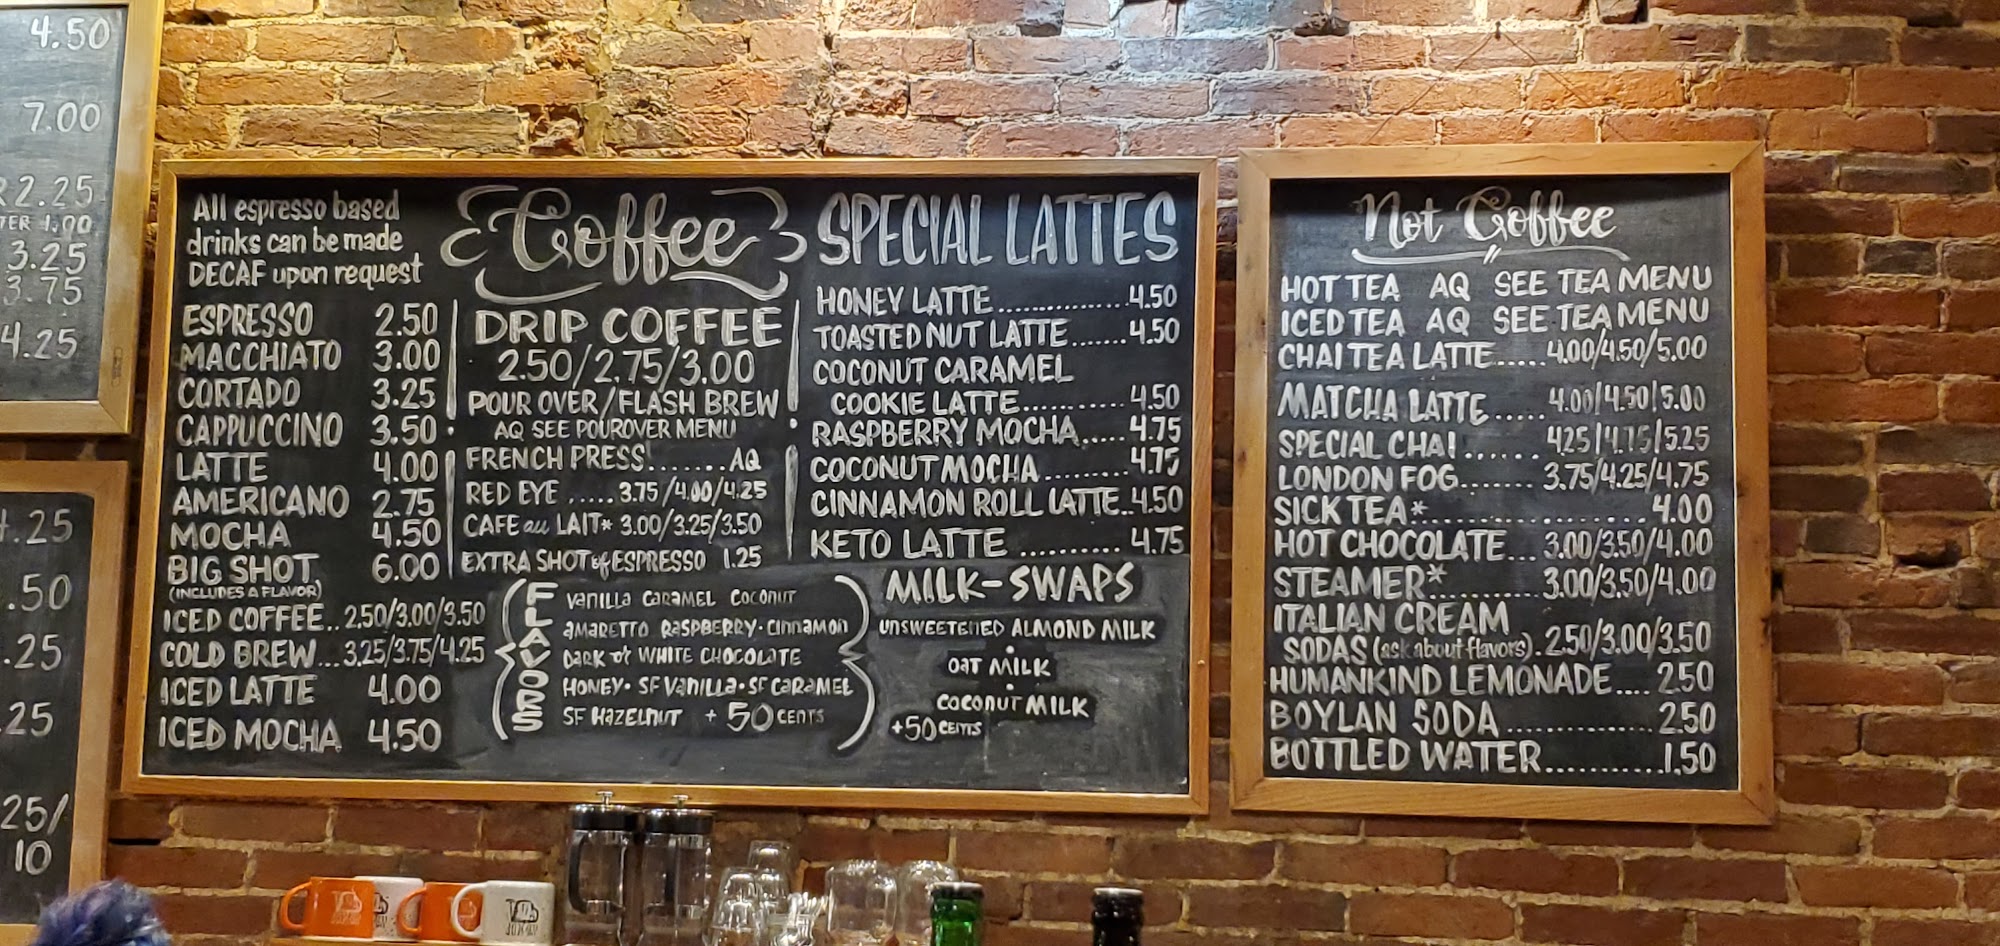 4.50
7.00
2.25
1.00
3.25
3.75
4.25
.25
.50
.25
.25
25/
10
All espresso based
drinks can be made
DECAF upon request
ESPRESSO 2.50
MACCHIATO 3.00
CORTADO 3.25
CAPPUCCINO 3.50
LATTE 4.00
AMERICANO 2.75
MOCHA 4.50
BIG SHOT 6.00
(INCLUDES A FLAVOR)
ICED COFFEE.. 2.50/3.00/3.50
COLD BREW...3.25/3.75/4.25
ICED LATTE 4.00
ICED MOCHA 4.50
Coffee
DRIP COFFEE
2.50/2.75/3.00
POUR OVER/FLASH BREW
AQ SEE POUROVER MENU
FRENCH PRESS.......AQ
RED EYE ..... 3.75/4.00/4.25
CAFE au LAIT* 3.00/3.25/3.50
EXTRA SHOT of ESPRESSO 1.25
FLAVORS
VANILLA CARAMEL COCONUT
AMARETTO RASPBERRY • CINNAMON
DARK or WHITE CHOCOLATE
HONEY • SF VANILLA • SF CARAMEL
SF HAZELNUT + 50 CENTS
SPECIAL LATTES
HONEY LATTE..............4.50
TOASTED NUT LATTE.......4.50
COCONUT CARAMEL
COOKIE LATTE...........4.50
RASPBERRY MOCHA.....4.75
COCONUT MOCHA.........4.75
CINNAMON ROLL LATTE..4.50
KETO LATTE .......... 4.75
MILK-SWAPS
UNSWEETENED ALMOND MILK
•
OAT MILK
•
COCONUT MILK
+50 CENTS
Not Coffee
HOT TEA AQ SEE TEA MENU
ICED TEA AQ SEE TEA MENU
CHAI TEA LATTE..... 4.00/4.50/5.00
MATCHA LATTE..... 4.00/4.50/5.00
SPECIAL CHAI ...... 4.25/4.75/5.25
LONDON FOG....... 3.75/4.25/4.75
SICK TEA*.................... 4.00
HOT CHOCOLATE... 3.00/3.50/4.00
STEAMER*.......... 3.00/3.50/4.00
ITALIAN CREAM
SODAS (ask about flavors). 2.50/3.00/3.50
HUMANKIND LEMONADE.... 2.50
BOYLAN SODA............... 2.50
BOTTLED WATER...........1.50